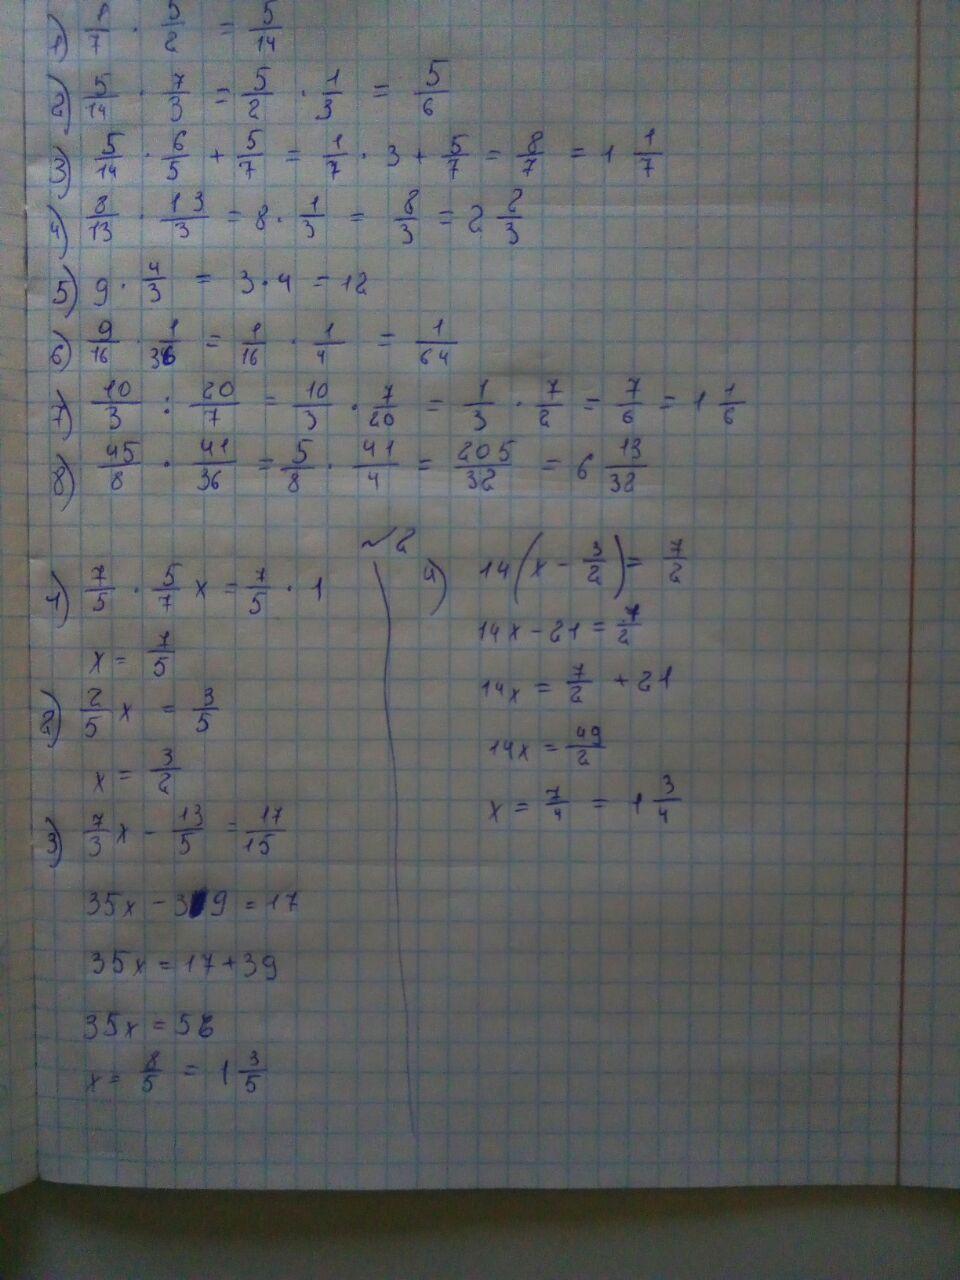 1) 1/7 · 5/2 = 5/14
2) 5/14 · 7/3 = 5/2 · 1/3 = 5/6
3) 5/14 · 6/5 + 5/7 = 1/7 · 3 + 5/7 = 8/7 = 1 1/7
4) 8/13 · 13/3 = 8 · 1/3 = 8/3 = 2 2/3
5) 9 · 4/3 = 3 · 4 = 12
6) 9/16 · 1/36 = 1/16 · 1/4 = 1/64
7) 10/3 : 20/7 = 10/3 · 7/20 = 1/3 · 7/2 = 7/6 = 1 1/6
8) 45/8 · 41/36 = 5/8 · 41/4 = 205/32 = 6 13/32
~2
1) 7/5 · 5/7 x = 7/5 · 1
x = 7/5
2) 2/5 x = 3/5
x = 3/2
3) 7/3 x - 13/5 = 17/15
35x - 39 = 17
35x = 17 + 39
35x = 56
x = 8/5 = 1 3/5
4) 14(x - 3/2) = 7/2
14x - 21 = 7/2
14x = 7/2 + 21
14x = 49/2
x = 7/4 = 1 3/4